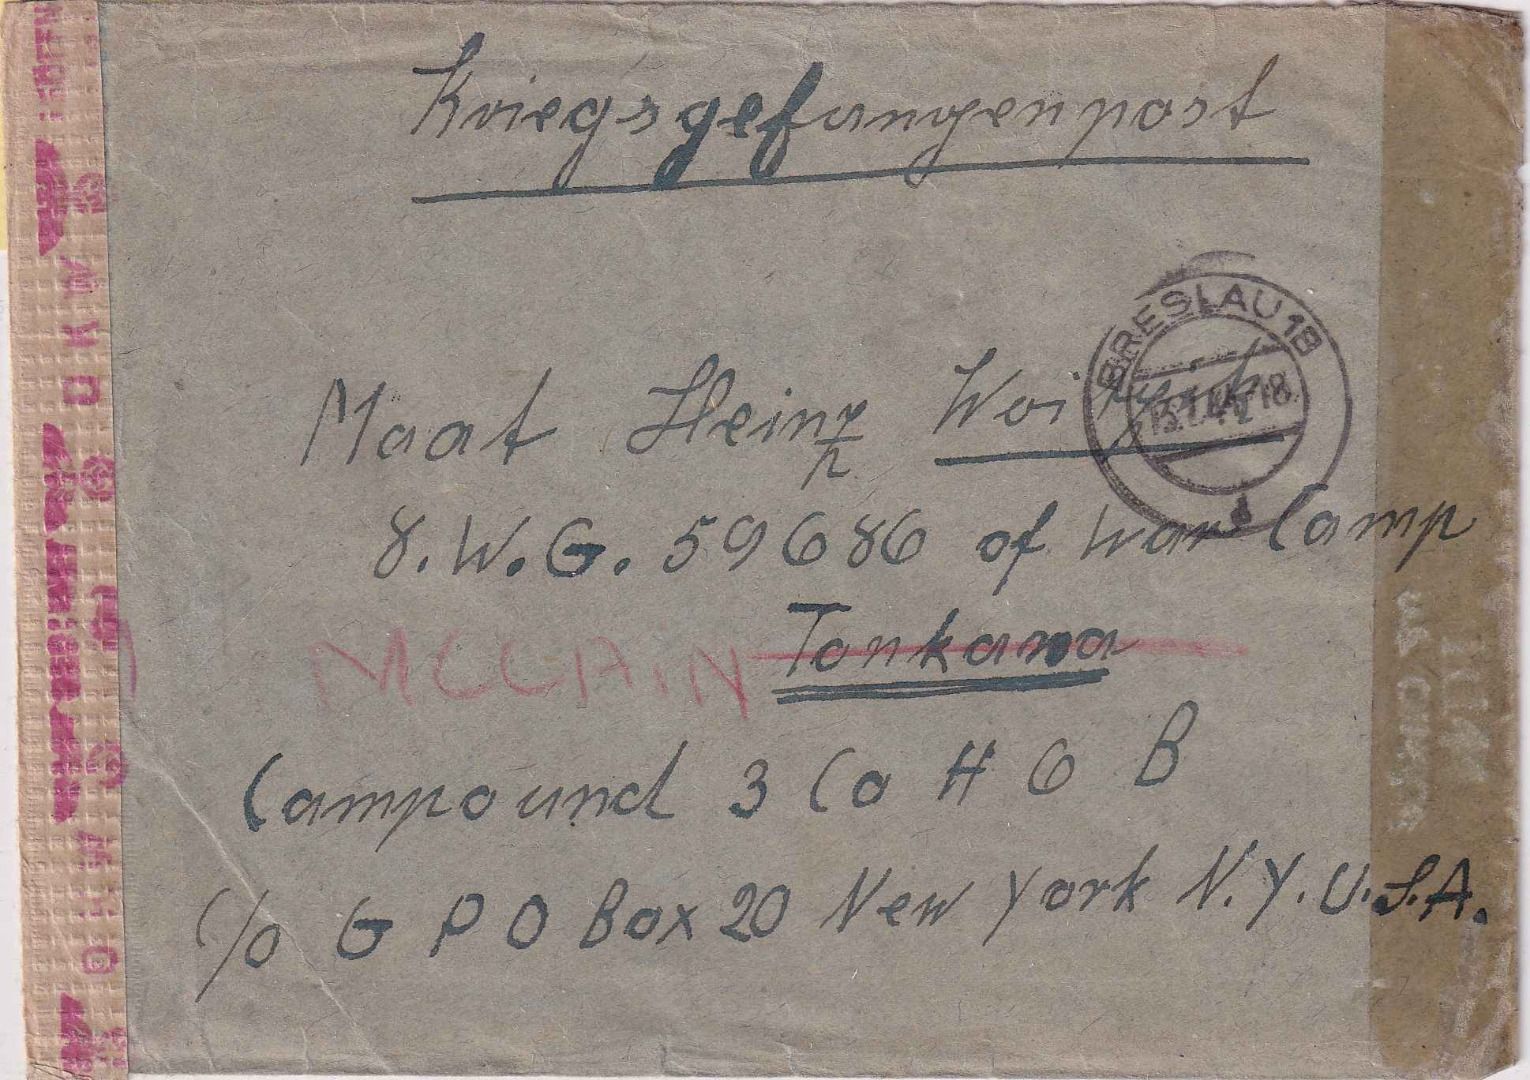 Kriegsgefangenenpost
BRESLAU 18
Maat Heinz
8.W.G. 59686 of War Camp
MCCAIN Tonkawa
Compound 3 Co # 6 B
C/o G P O Box 20 New York N.Y. U.S.A.
OKW
OKW